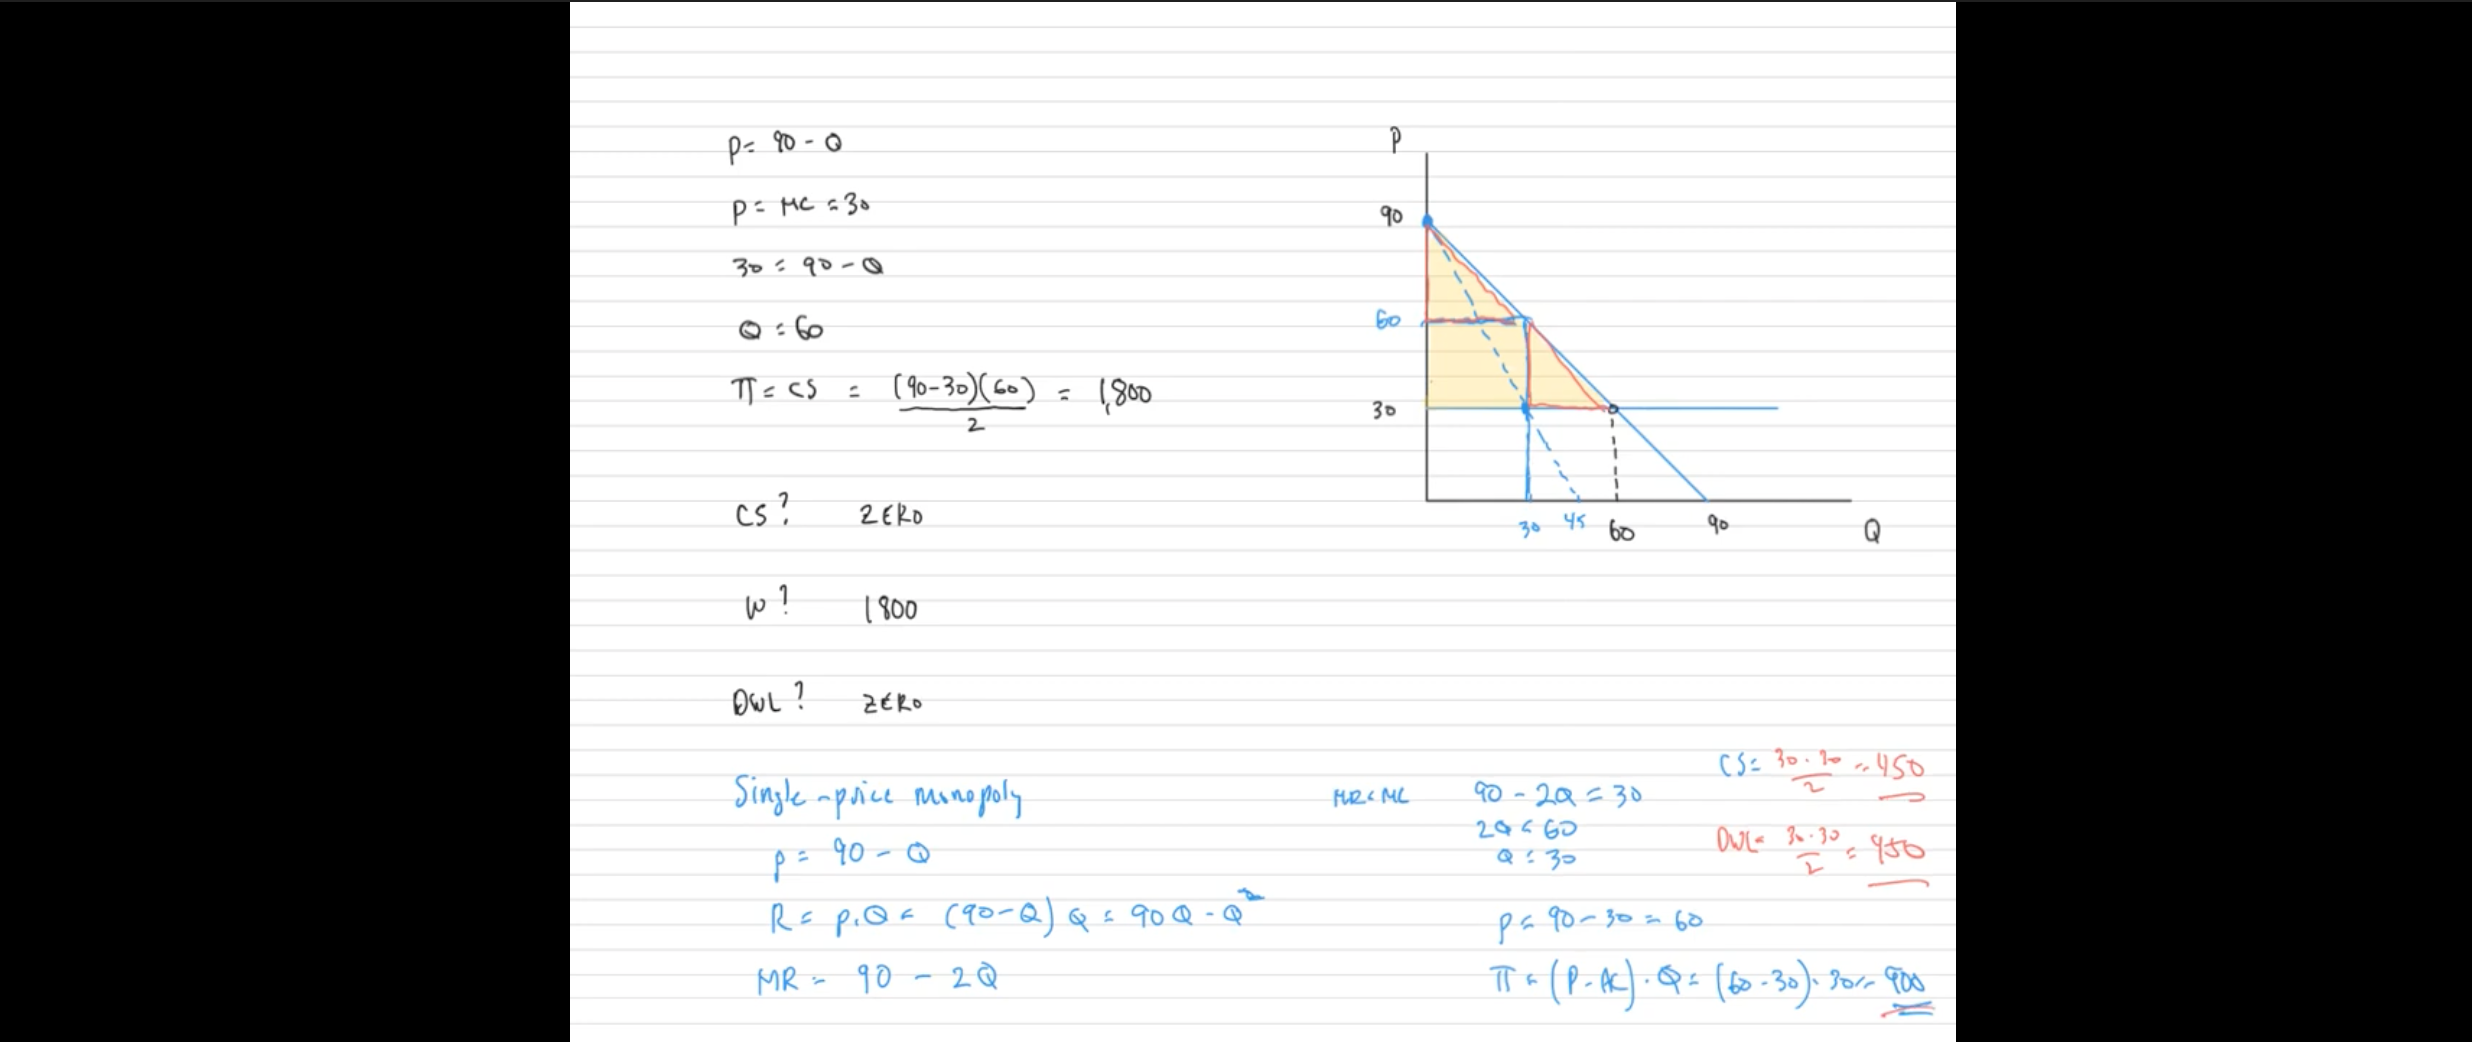 P = 90 - Q
P = MC = 30
30 = 90 - Q
Q = 60
π = CS = (90-30)(60) / 2 = 1,800
CS? ZERO
W? 1800
DWL? ZERO
P
90
60
30
30 45 60 90 Q
Single-price monopoly
p = 90 - Q
R = p.Q = (90-Q) Q = 90Q - Q²
MR = 90 - 2Q
MR = MC 90 - 2Q = 30
2Q = 60
Q = 30
P = 90 - 30 = 60
π = (P - AC) . Q = (60 - 30) . 30 = 900
CS = 30 . 30 / 2 = 450
DWL = 30 . 30 / 2 = 450